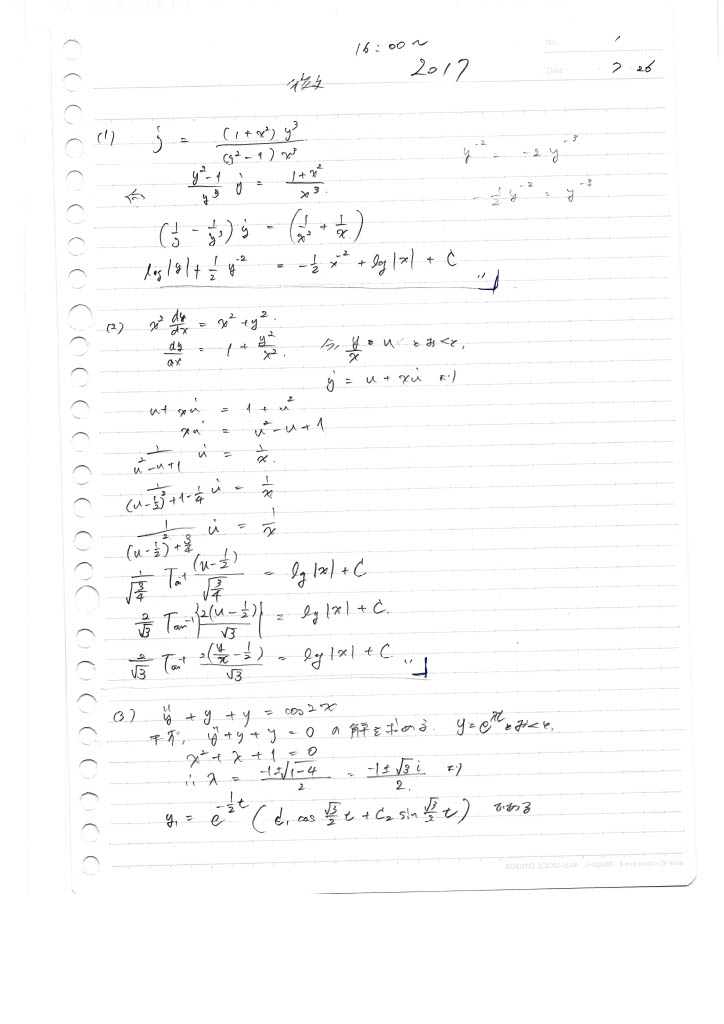 16:00~
2017
No.
Date 7 26
(1) ẏ = (1+x²)y³ / (y²-1)x³
y⁻² = -2y⁻³
(y²-1)/y³ ẏ = (1+x²)/x³
-1/2 y⁻² = y⁻³
(1/y - 1/y³) ẏ = (1/x³ + 1/x)
log|y| + 1/2 y⁻² = -1/2 x⁻² + log|x| + C
(2) x² dy/dx = x² + y².
dy/dx = 1 + y²/x². 今, y/x = u とおくと,
ẏ = u + xu̇ より
u + xu̇ = 1 + u²
xu̇ = u² - u + 1
1/(u²-u+1) u̇ = 1/x.
1/((u-1/2)²+1-1/4) u̇ = 1/x
1/((u-1/2)²+3/4) u̇ = 1/x
1/√(3/4) Tan⁻¹ (u-1/2)/√(3/4) = log|x| + C
2/√3 Tan⁻¹ {2(u-1/2)/√3} = log|x| + C.
2/√3 Tan⁻¹ 2(y/x - 1/2)/√3 = log|x| + C
(3) ÿ + ẏ + y = cos2x
ÿ + ẏ + y = 0 の解を求める. y = e^λt とおくと,
λ² + λ + 1 = 0
∴ λ = (-1±√(1-4))/2 = (-1±√3i)/2. より
y₁ = e^(-1/2 t) (C₁ cos √3/2 t + C₂ sin √3/2 t) である